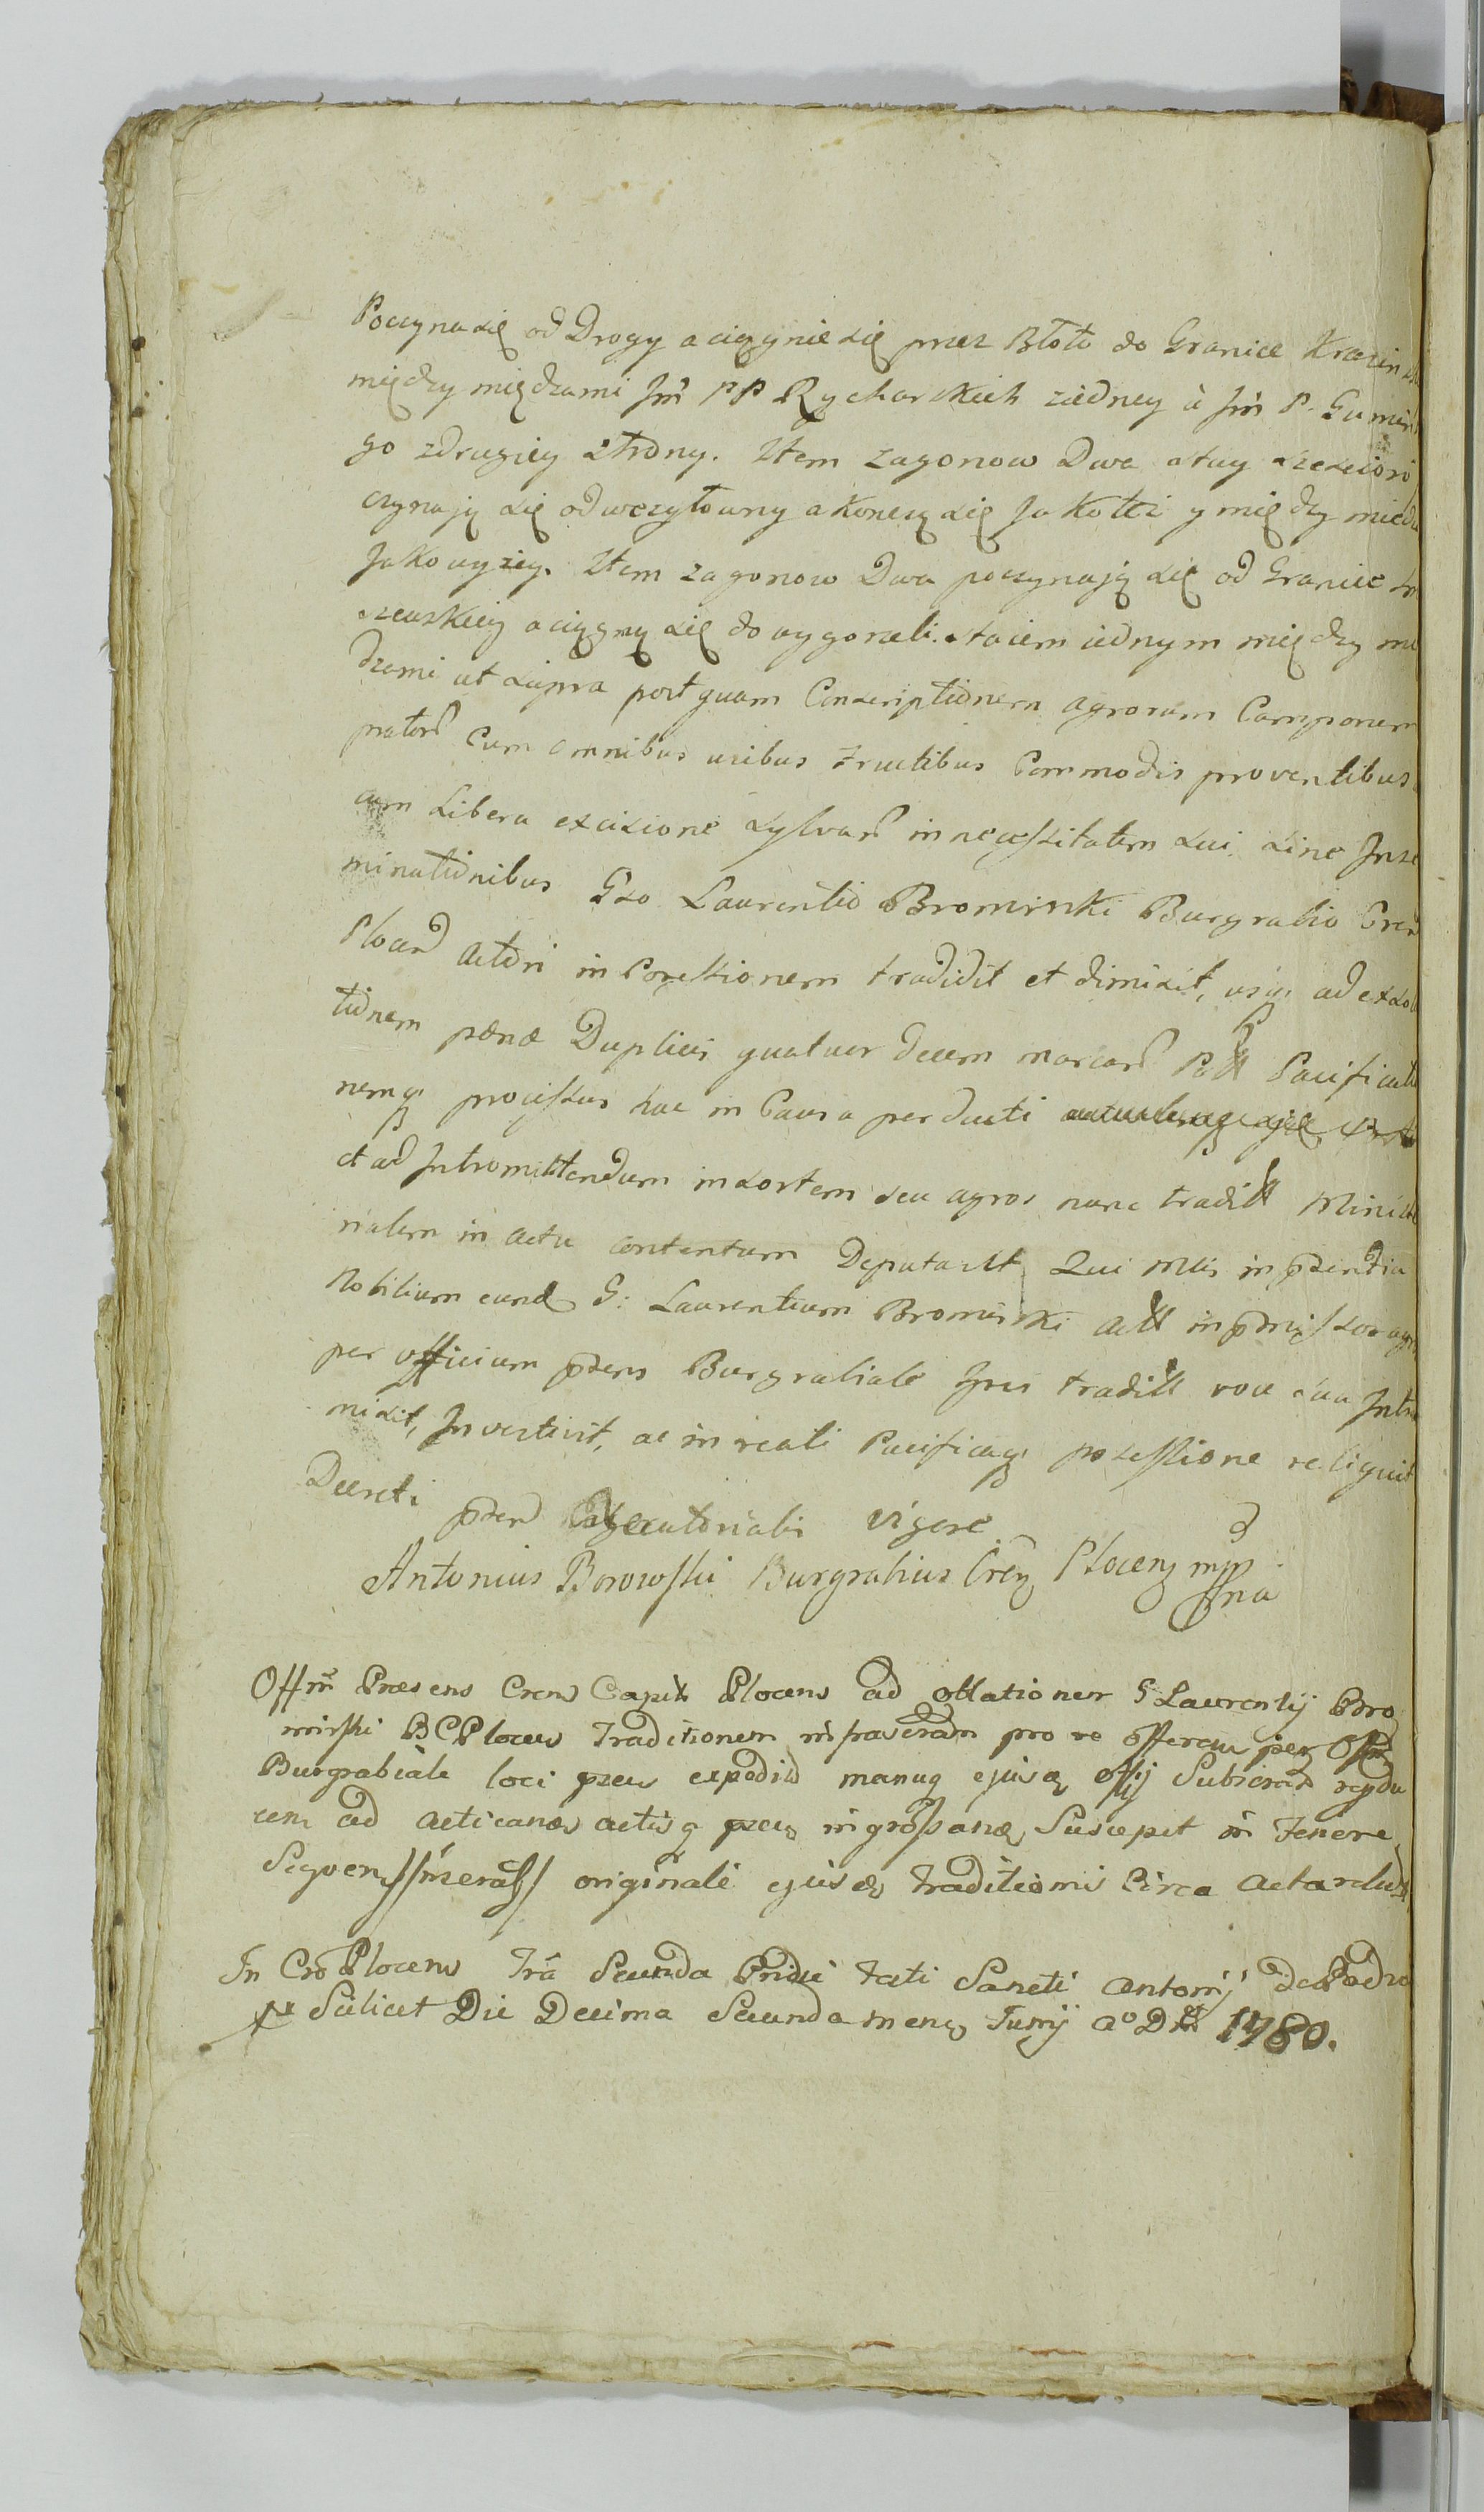 Poczyna się od Drogy a ciągnie się przez Błoto do Granice
między międzami Jm̃ PP Rycharskich ziedney à Jm̃ P.
go zdrugiey strony. Item zagonow Dwa stay
czynaią się od a konczą się Jakotki y między
Jako wyzey. Item zagonow Dwa poczynaią się od Granice
szewskiey a ciągną się do wygorzeli. staiem iednym między mie
dzami ut supra post quam Conscriptionem agrorum Camporum
pratorũ cum omnibus usibus fructibus Commodis proventibus
cum Libera excisione sylvarũ in necessitatem sui sine Inse
minationibus Gso Laurentio Bromirski Burgrabio Cren
Plocen Actori in Possessionem tradidit et dimisit, usq ad exsolu
tionem pænæ Duplicis quatuor decem marcarũ Polł Pacificatio
nemq processus hac in Causa perducti
et ad Intromittendum in sortem seu agros nunc tradittt Ministe
rialem in actu contentum Deputavit Qui Mlis in
Nobilium eund G: Laurentium Bromirski Actt in
per officium pñens Burgrabiale Ipsi tradittt voce sua Intro
misit, Investivit, ac in reali Pacificaq possessione reliquit
Decreti pñen Executorialis vigore
Antonius Borowski Burgrabius Cren Plocen mpp
Offm̃ Præsens Cren Capitt Plocens ad oblationem G Laurentij Bro
mirski BC Plocen Traditionem infrascriptam pro re offeren per Offm̃
Burgrabiale loci pñen expedit manuq ejusq offij Subscript
cen ad acticand actisq pñen ingrossand Suscepit in tenore
Sequen //inserat// originali ejusd traditionis Circa acta
In Cro Plocens fria Secunda Pridie festi Sancti Antonij de Padua
Scilicet Die Decima Secunda mens Junij Aº Dm̃ 1780.